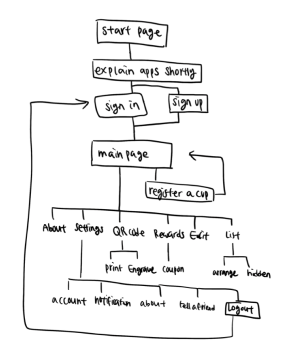 start page
explain apps shortly
sign in
sign up
main page
register a cup
About Settings QR code Rewards Exit List
print Engrave coupon arrange hidden
account notification about tell a friend Logout